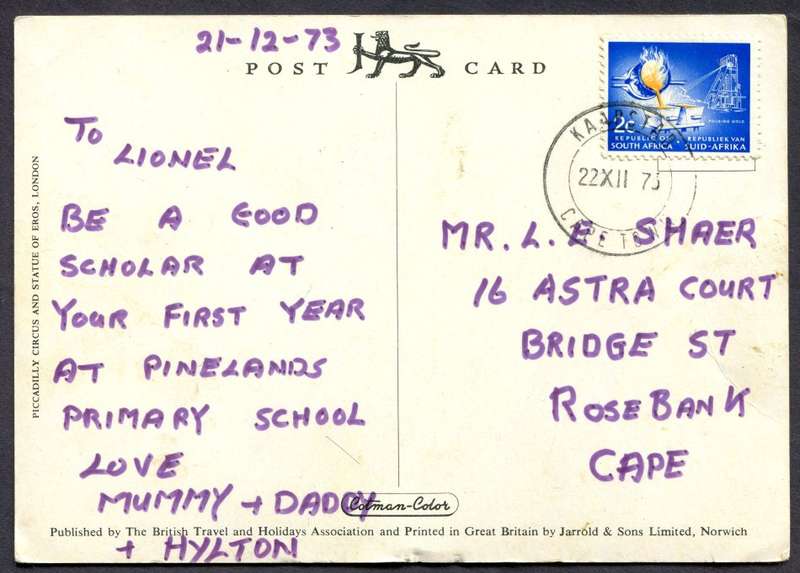 21-12-73
POST CARD
TO
LIONEL
BE A GOOD
SCHOLAR AT
YOUR FIRST YEAR
AT PINELANDS
PRIMARY SCHOOL
LOVE
MUMMY + DADDY
+ HYLTON
PICCADILLY CIRCUS AND STATUE OF EROS, LONDON
2c
POURING GOLD
REPUBLIC OF SOUTH AFRICA
REPUBLIEK VAN SUID-AFRIKA
22 XII 73
CAPE TOWN
MR. L. E. SHAER
16 ASTRA COURT
BRIDGE ST
ROSEBANK
CAPE
Cotman-Color
Published by The British Travel and Holidays Association and Printed in Great Britain by Jarrold & Sons Limited, Norwich